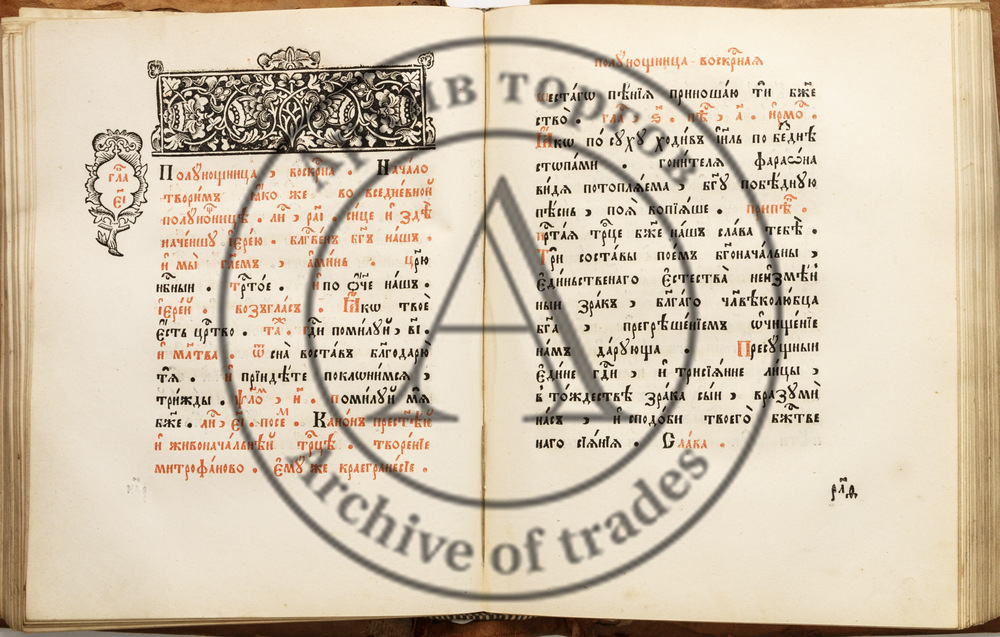 гла҃
є҃і
Полꙋнощница , воскр҇на . Начало
творимъ ꙗко же . во вседневной
полꙋнощницѣ . ли҇ , рл҃і . сице и҆ здѣ
наченшꙋ і҆ере́ю . блгⷭ҇ве́нъ бг҃ъ на́шъ .
и҆ мы̀ гл҃емъ , а҆ми́нь . цр҃ю̀
нб҇ныи . трⷭ҇то́е . и҆ по ѻ҆́ч҃е на́шъ .
і҆ере́й . во́згласъ . Ꙗ҆́кѡ твоѐ
є҆́сть црⷭ҇тво . та́ . гдⷭ҇и поми́лꙋй , в҃і .
и҆ мл҃тва . ѿ сна̀ воста́въ благодарю̀
тѧ̀ . и҆ прїиди́те поклони́мсѧ ,
три́жды . ѱало́м , н҃ . поми́лꙋй мѧ̀
бж҃е . ли҇ , є҃і . посе́м . Кано́нъ прест҃ѣ́й
и҆ живонача́льнѣй трⷪ҇цѣ . творе́нїе
митрофа́ново . є҆мꙋ́же краегране́сїе .
полꙋнощница . воскр҇наѧ
шеста́гѡ пѣ́нїѧ приноша́ю тѝ бж҃е
ство̀ . гла҃ , ѕ҃ . пѣ́ , а҃ . і҆рмо́ .
Ꙗ҆́кѡ по сꙋ́хꙋ ходи́въ і҆и҃ль по бе́зднѣ
стопа́ми . гони́телѧ фараѡ́на
ви́дѧ потоплѧ́ема , бг҃ꙋ побѣ́днꙋю
пѣ́снь , поѧ̀ вопїѧ́ше . припѣ́ .
прⷭ҇та́ѧ трⷪ҇це бж҃е на́шъ сла́ва тебѣ̀ .
Трѝ соста́вы пое́мъ бг҃онача́льны ,
є҆ди́нственаго є҆стества̀ неизмѣ́н
ныи зра́къ , бл҃га́го чл҃вѣколю́бца
бг҃а , прегрѣше́нїемъ ѡ҆чище́нїе
на́мъ да́рꙋюща . Пресꙋ́щныи
є҆ди́не гдⷭ҇и , и҆ трисїѧ́нне ли́цы ,
в то́ждествѣ зра́ка сы́и , вразꙋмѝ
на́съ , и҆ сподо́би твоего̀ бж҃тве
наго сїѧ́нїѧ . Сла́ва .
рл҃ѳ
Архив торгов
Archive of trades